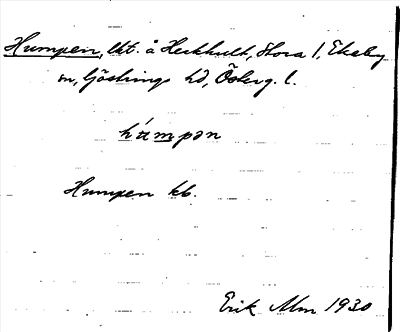 Humpen, lht. å Heckhult, Stora l, Ekeby
sn, Göstrings hd, Österg. l.
hu̇mpən
Humpen kb.
Erik Alm 1930